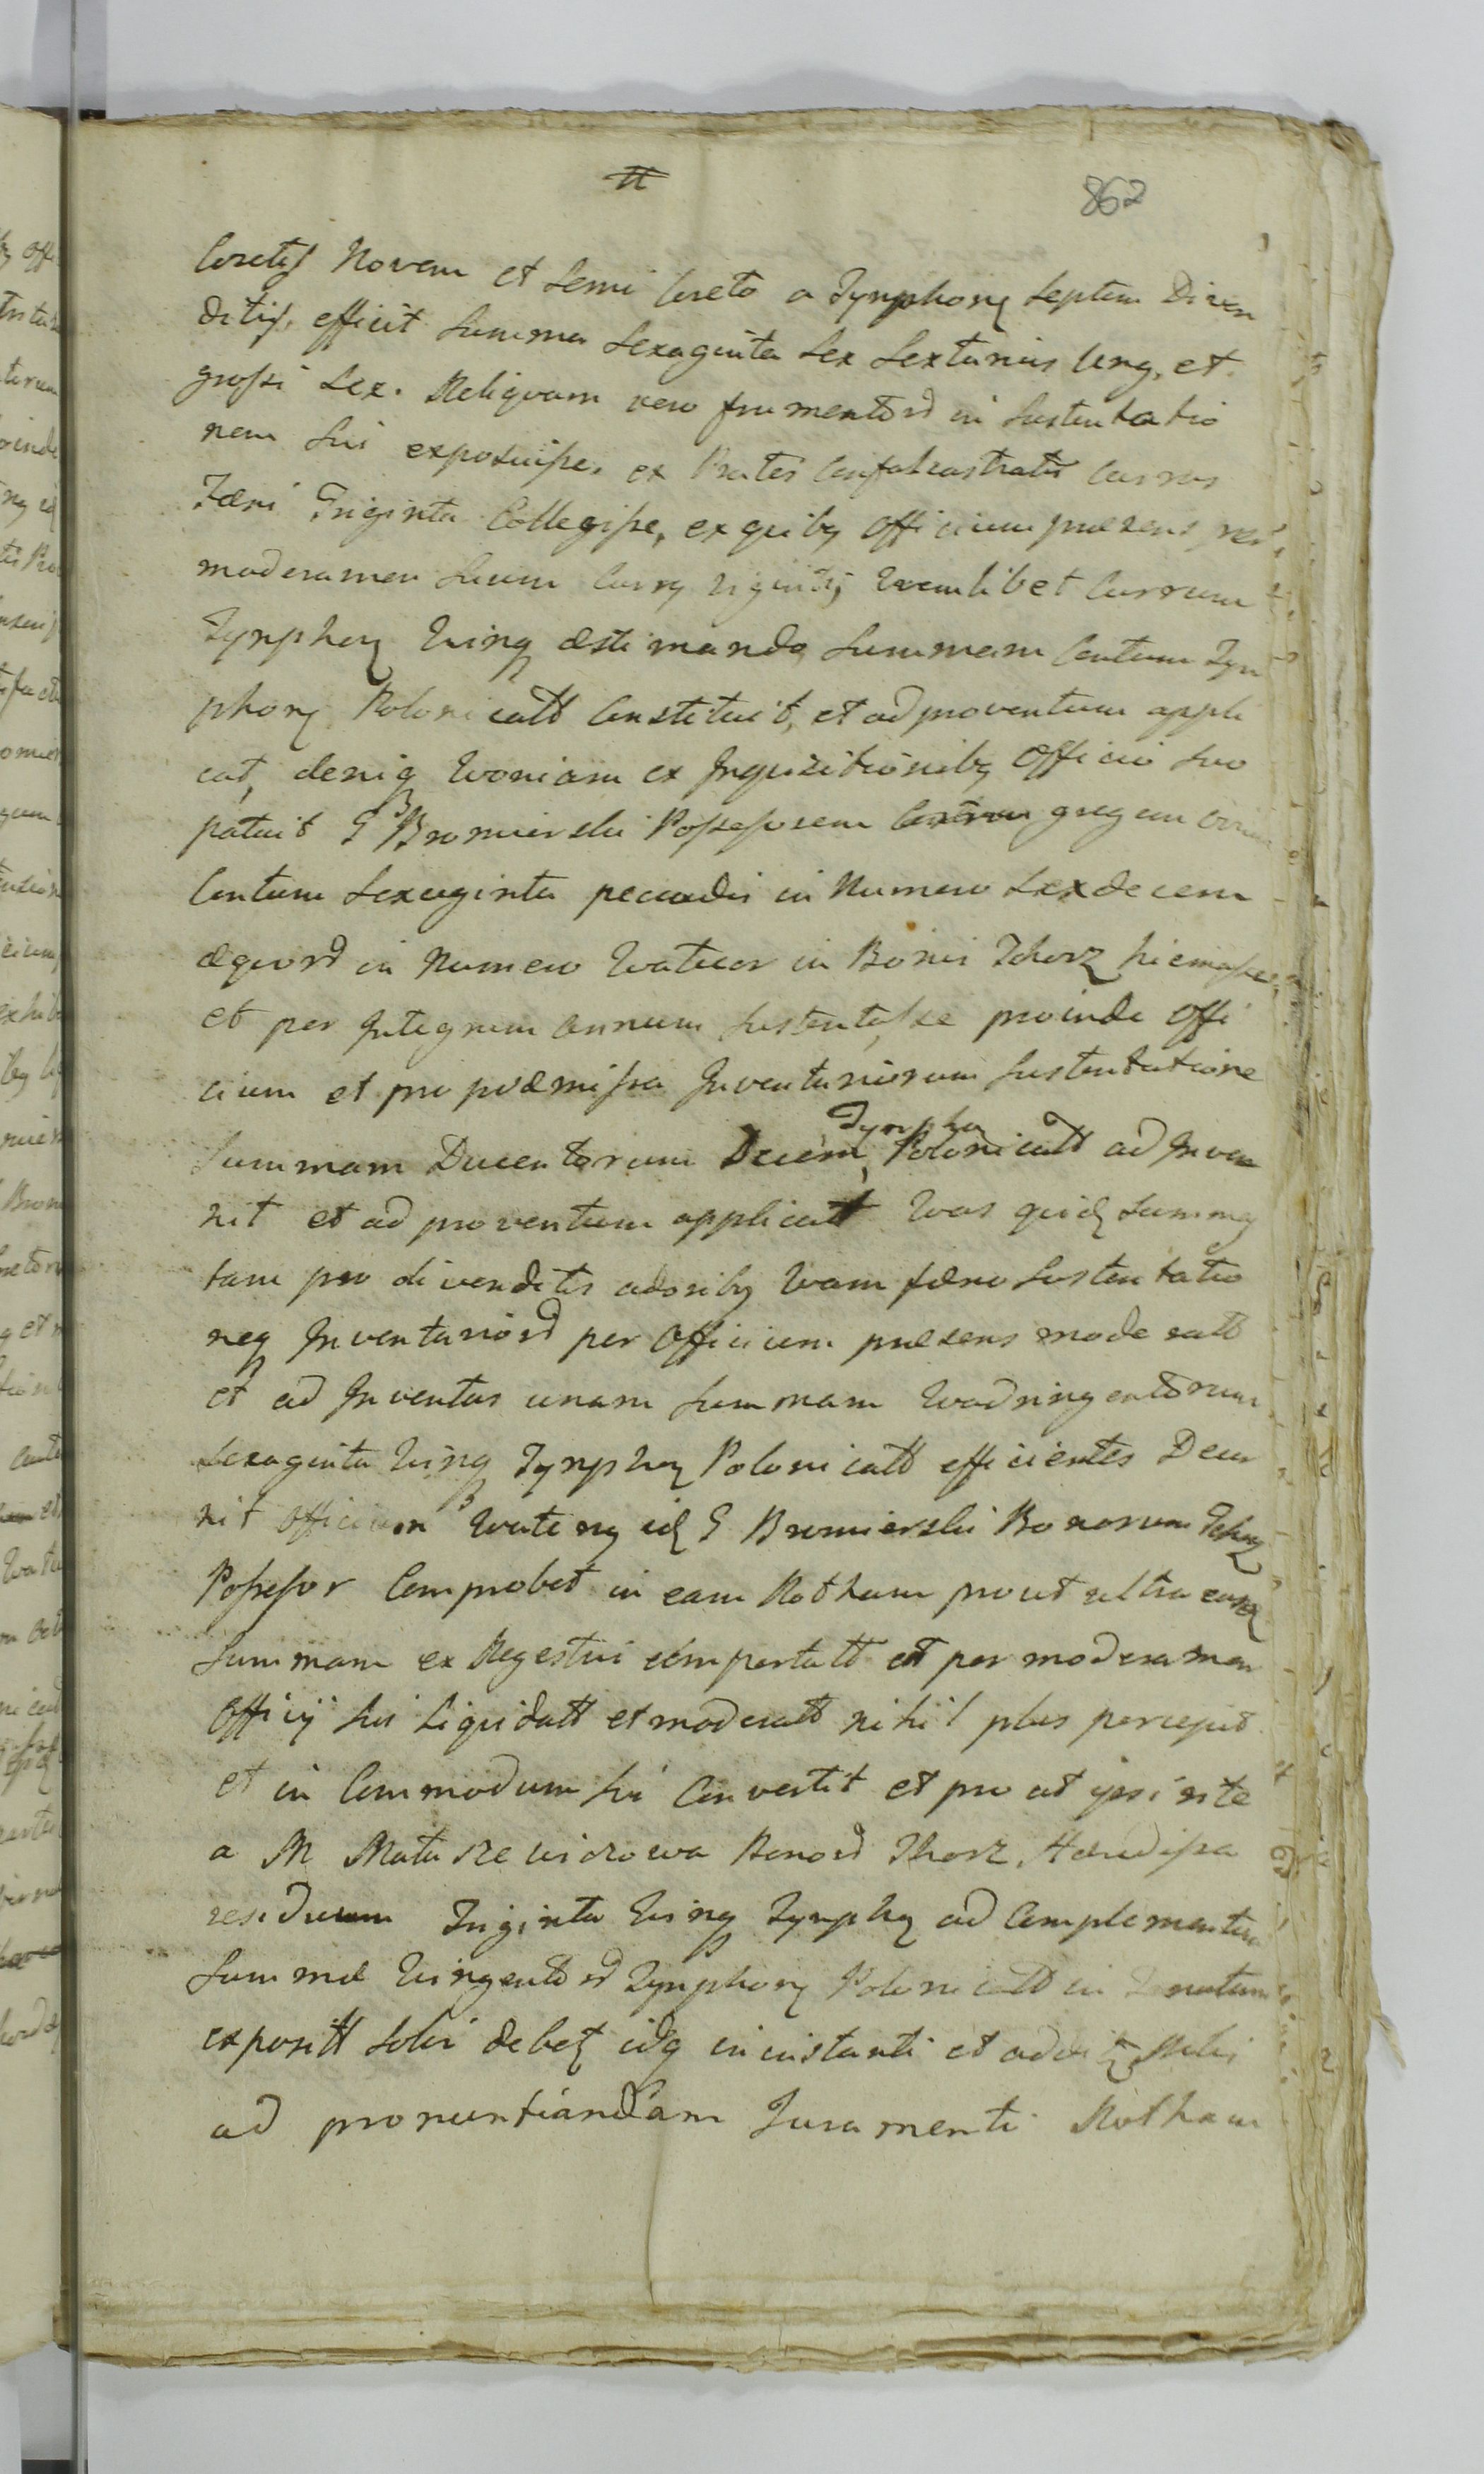 862
Coretis Novem et Semi Coreto a Tynphonis Septem Diven
ditis, efficit Summa Sexaginta Sex Sextarius unq, et
grossi Sex. Reliquam vero frumentord in Sustentatio
nem Sui exposuisse, ex Pratis Confalcastratis currus
Fæni Triginta Collegisse, ex quibq Officium præsens per
moderamen Suum Currq viginti, Quemlibet Currum
Tynphonq Quinq æstimando Summam Centum Tyn
phonq Polonicatt Constituit, et ad proventum appli
cat, deniq Quoniam ex Inquisitionibq Officio Suo
patuit G Bromierski Possessorem gregem ovium
Centum Sexaginta pecudis in Numero Sexdecem
æquord in Numero Quatuor in Bonis Tchorz hiemasse,
et per Integrum annum Sustentasse proinde Offi
cium et pro præmissa Inventariorum Sustentatione
Tynpho
Summam Ducentorum Decem, Polonicatt ad Inve
nit et ad proventum applicatt Quas quidq Summq
tam pro divenditis adoribq Quam fæno Sustentatio
neq Inventariord per Officium præsens moderatt
et ad Inventas unam Summam Quadringentorum
Sexaginta Quinq Tynphq Polonicatt efficientes Decer
nit Officium Quatenq idq G Bromierski Bonorum Tchorz
Possessor Comprobet in eam Rotham prout ultra eandq
Summam ex Regestris comportatt et per moderamen
Officij Sui Liquidatt et moderatt nihil plus percepit
et in Commodum Sui Convertit et pro ut ipsi rite
a M Matuszewiczowa Bonord Thorz, Hæredissa
residuum Triginta Quinq Tynphq ad Complementum
Summæ Quingentord Tynphonq Polonicatt in
expositt Solvi debetq idq in instanti et
ad pronuntiandam Juramenti Rotham